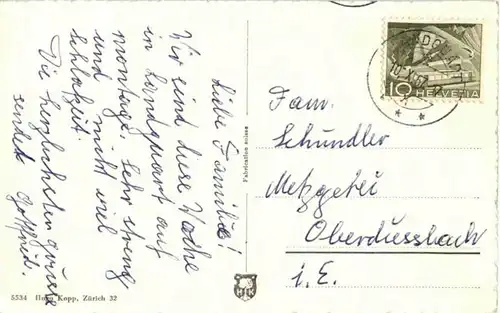 Liebe Familie!
Wir sind diese Woche
in Landquart auf
montage, sehr streng
und nicht viel
Schlafzeit.
Die herzlichsten Grüsse
sendet Gottfried.
Fabrication suisse
5534 Hugo Kopp, Zürich 32
HK
10 HELVETIA
Fam.
Schindler
Metzgerei
Oberdiessbach
i. E.